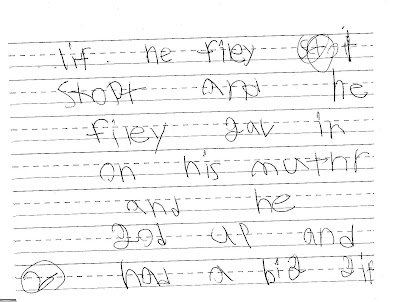 lif. he filey got it
Stopt and he
filey gav in
on his muthr
and he
god up and
had a big gif